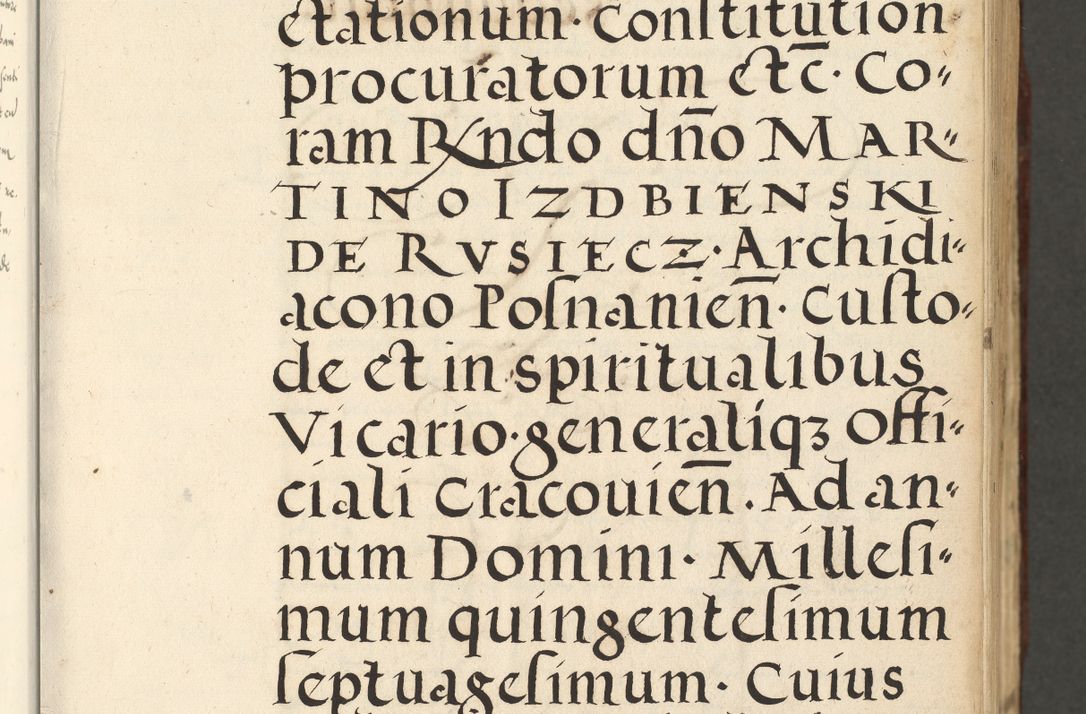 ctationum · Conſtitution
procuratorum etc̄· Co〃
ram Rndo dn̄o MAR〃
TINO IZDBIENSKI
DE RVSIECZ· Archidi〃
acono Poſnanień· Cuſto〃
de et in spiritualibus
Vicario·generaliqꝫ Offi〃
ciali Cracouień. Ad an〃
num Domini· Milleſi〃
mum quingenteſimum
ſeptuageſimum· Cuius